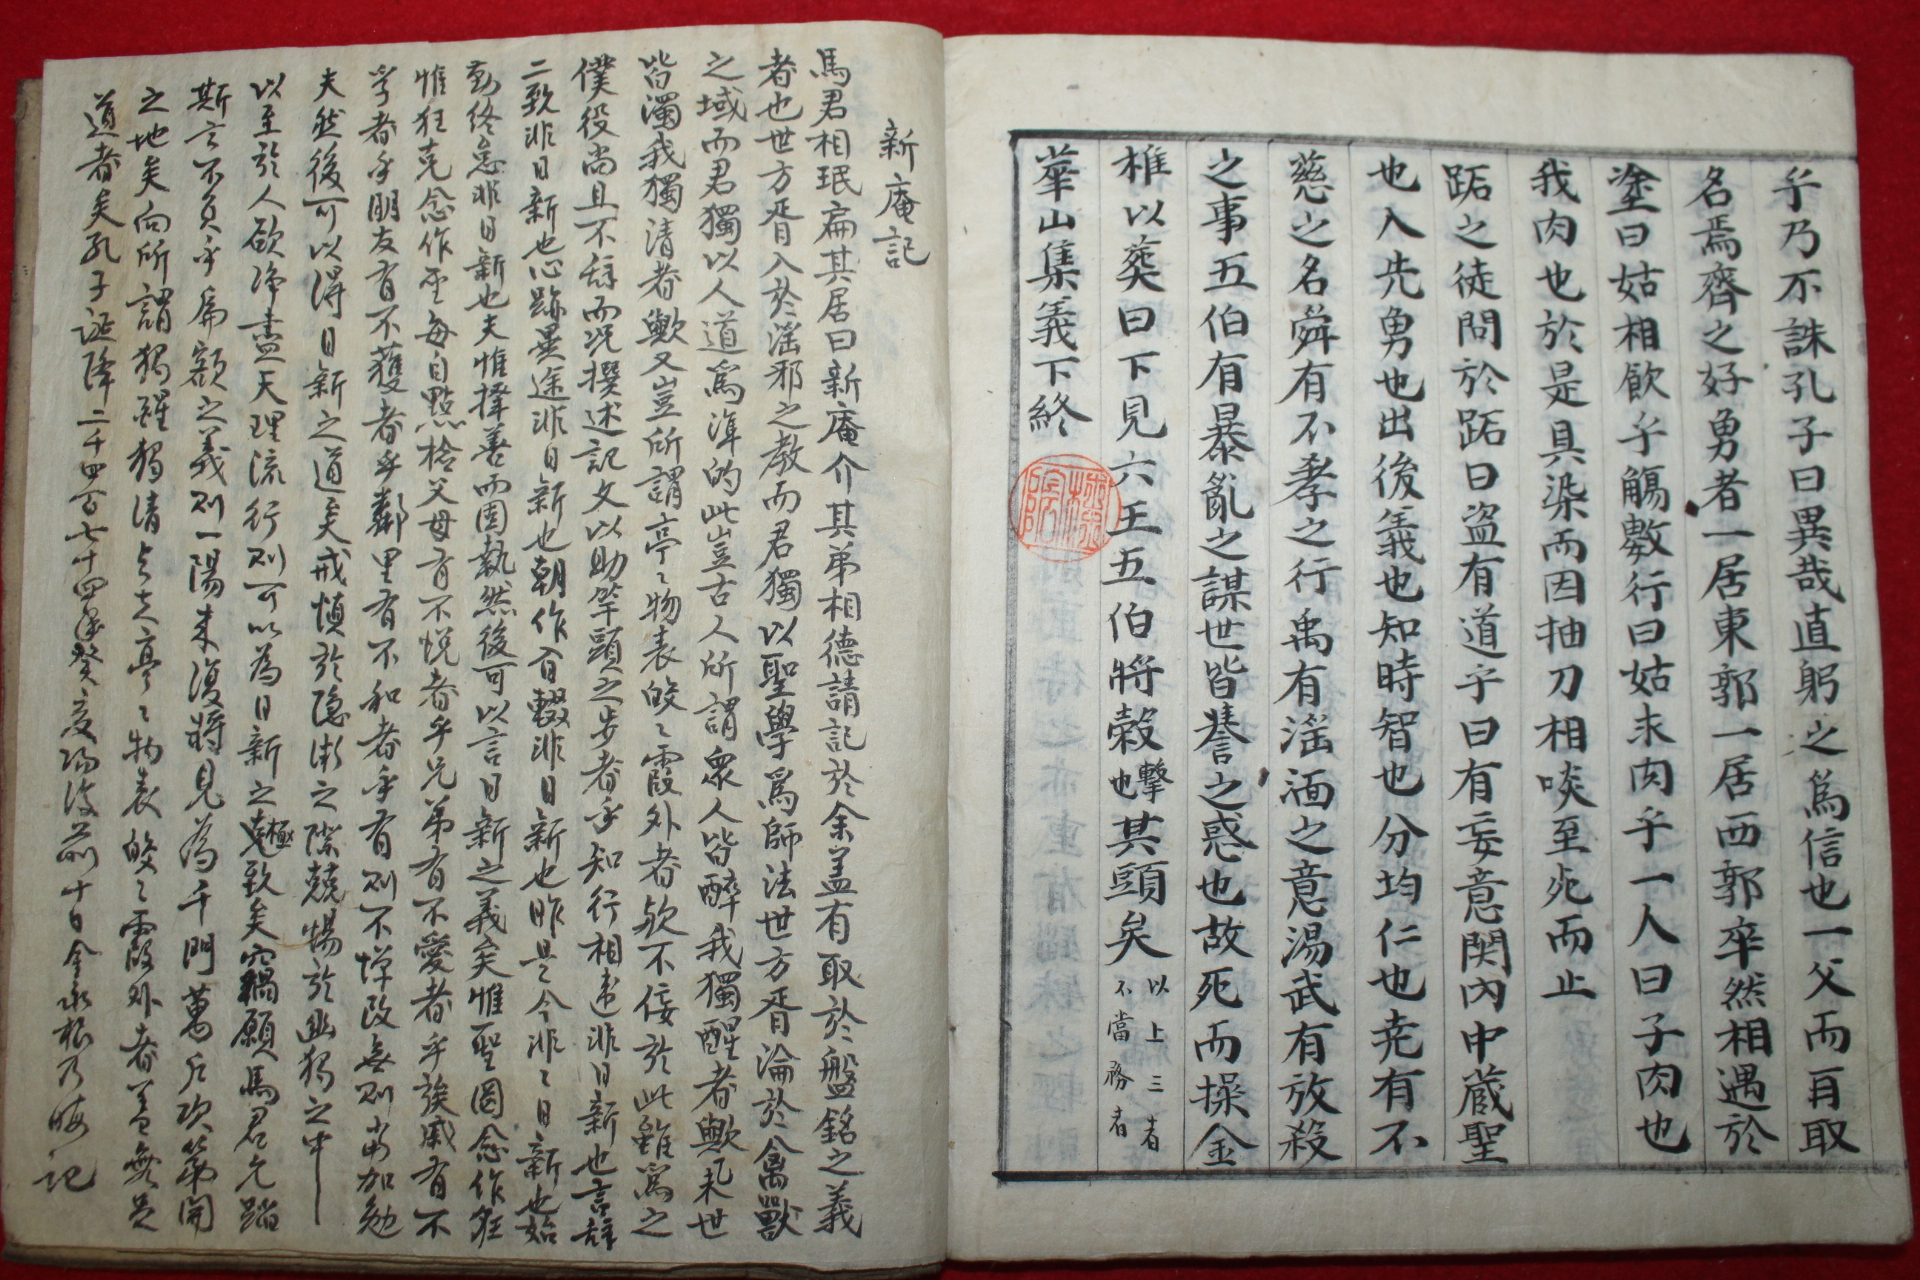 乎乃不誅孔子曰異哉直躬之爲信也一父而再取
名焉齊之好勇者一居東郭一居西郭卒然相遇於
塗曰姑相飮乎觴數行曰姑求肉乎一人曰子肉也
我肉也於是具染而因抽刀相啖至死而止
跖之徒問於跖曰盜有道乎曰有妄意関內中藏聖
也入先勇也出後義也知時智也分均仁也尭有不
慈之名舜有不孝之行禹有淫湎之意湯武有放殺
之事五伯有暴亂之謀世皆譽之惑也故死而操金
椎以葬曰下見六王五伯將㲉擊也其頭矣以上三者不當務者
華山集義下終
新庵記
馬君相珉扁其居曰新庵介其弟相德請記於余盖有取於盤銘之義
者也世方胥入於淫邪之敎而君獨以聖學爲師法世方胥淪於禽獸
之域而君獨以人道爲準的此豈古人所謂衆人皆醉我獨醒者歟擧世
皆濁我獨淸者歟又豈所謂亭〻物表皎〻霞外者歟不侫於此雖爲之
僕役尙且不辞而况撰述記文以助竿頭之步者乎知行相違非日新也言辞
二致非日新也心跡異途非日新也朝作夕輟非日新也昨是今非〻日新也始
勤終怠非日新也夫惟擇善而固執然後可以言日新之義矣惟聖罔念作狂
惟狂克念作聖每自點檢父母有不悅者乎兄弟有不愛者乎族戚有不
孚者乎朋友有不獲者乎鄰里有不和者乎有則不憚改無則尤加勉
夫然後可以得日新之道矣戒愼於隱微之際兢惕於幽獨之中
以至於人欲淨盡天理流行則可以為日新之極致矣竊願馬君允蹈
斯言不負乎扁額之義則一陽來復將見為千門萬户次第開
之地矣向所謂獨醒獨淸与夫亭〻物表皎〻霞外者盖無足
道者矣孔子誕降二千四百七十四年癸亥陽復前十日金永根乃晦記